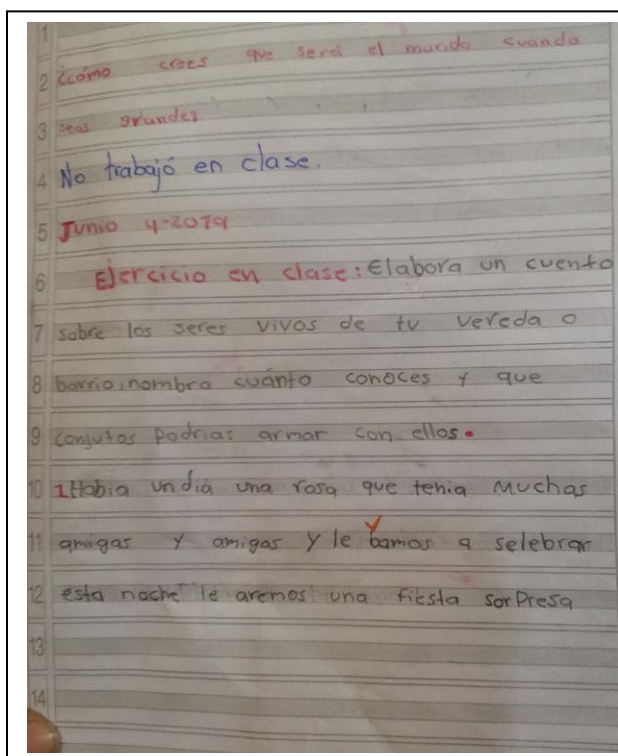 1
2 ¿cómo crees que será el mundo cuando
3 seas grande?
4 No trabajó en clase.
5 Junio 4-2019
6 Ejercicio en clase: Elabora un cuento
7 sobre los seres vivos de tu vereda o
8 barrio, nombra cuánto conoces y que
9 conjutos podrias armar con ellos.
10 1 Habia un dia una rosa que tenia muchas
11 amigas y amigas y le bamos a selebrar
12 esta noche le aremos una fiesta sorpresa
13
14